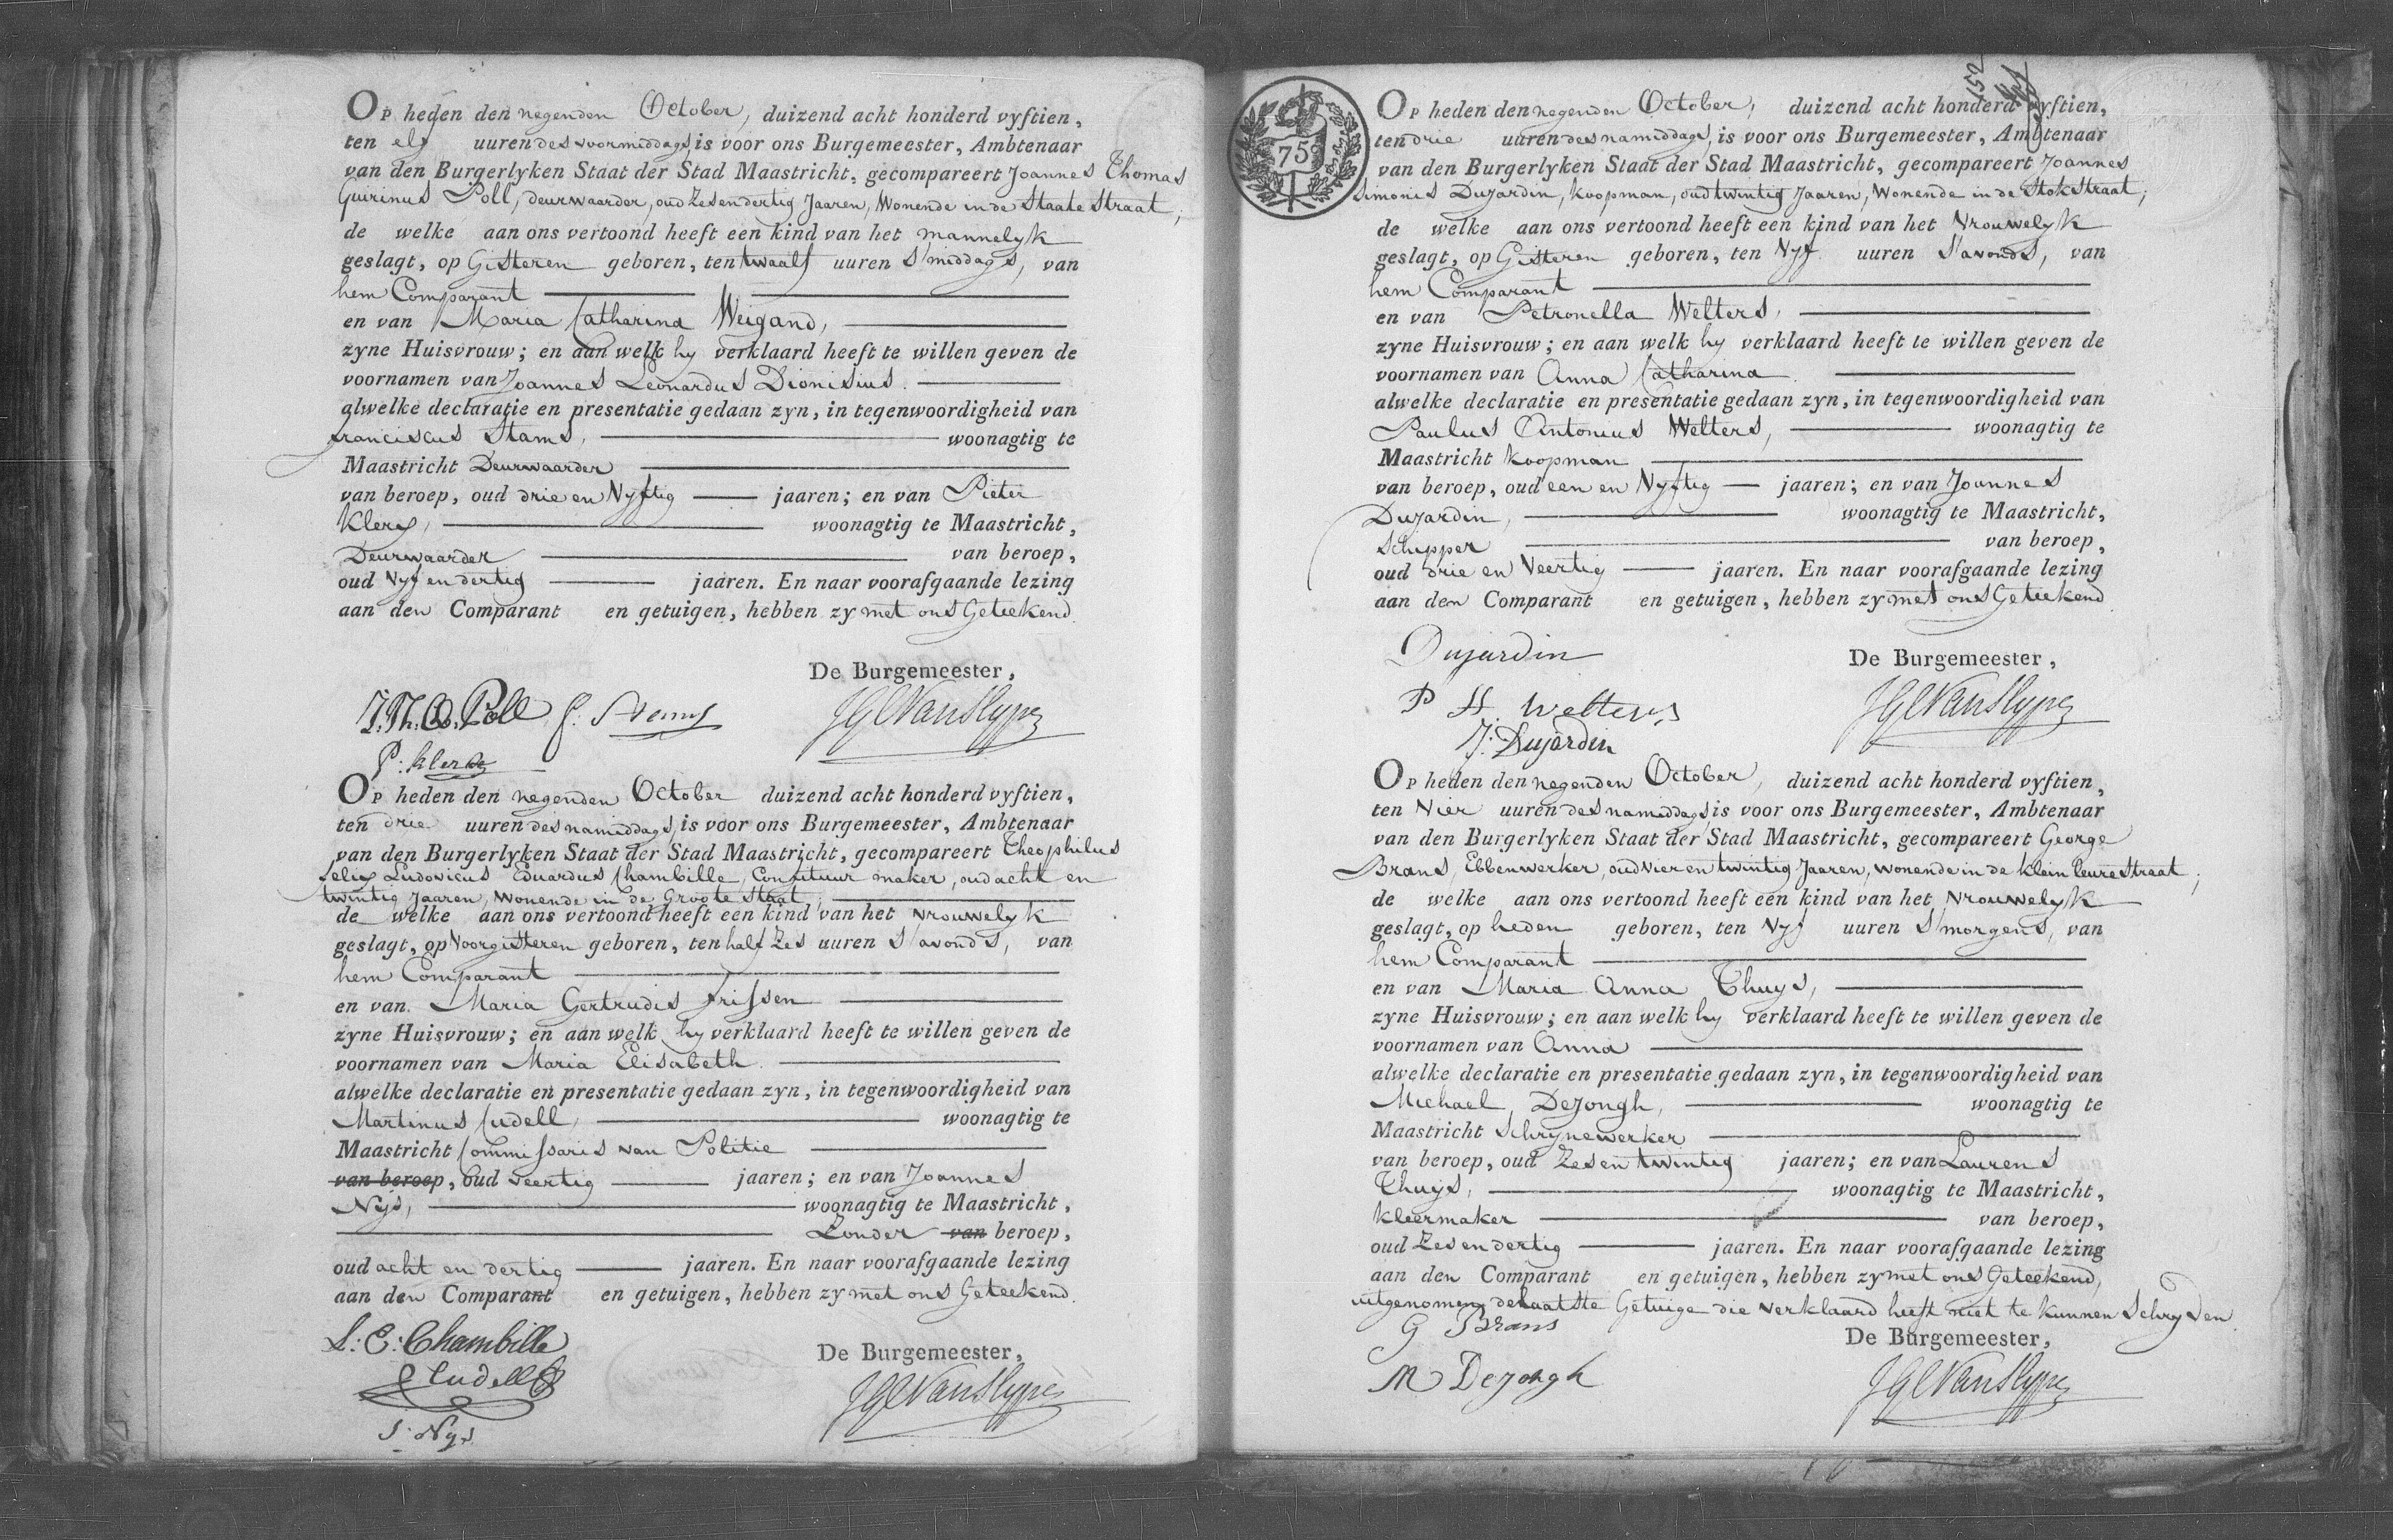 Op heden den negenden October, duizend acht honderd vyftien,
ten elf uuren des voormiddags, is voor ons Burgemeester, Ambtenaar
van den Burgerlyken Staat der Stad Maastricht, gecompareert Joannes Thomas
Quirinus Poll, deurwaarder, oud Zesendertig Jaaren, Wonende in de Staate Straat,
de welke aan ons vertoond heeft een kind van het mannelyk
geslagt, op Gisteren geboren, ten twaalf uuren S'middags, van
hem Comparant
en van Maria Catharina Weigand,
zyne Huisvrouw; en aan welk hy verklaard heeft te willen geven de
voornamen van Joannes Leonardus Dionisius.
alwelke declaratie en presentatie gedaan zyn, in tegenwoordigheid van
franciscus Stams, woonagtig te
Maastricht Deurwaarder
van beroep, oud drie en Vyftig jaaren; en van Pieter
Klerx, woonagtig te Maastricht,
Deurwaarder van beroep,
oud Vyf en dertig jaaren. En naar voorafgaande lezing
aan den Comparant en getuigen, hebben zy met ons Geteekend.
De Burgemeester,
J. Th. Q. Poll f: Stams JGEVanSlype
P: klerx
Op heden den negenden October duizend acht honderd vyftien,
ten drie uuren des namiddags, is voor ons Burgemeester, Ambtenaar
van den Burgerlyken Staat der Stad Maastricht, gecompareert Theophilus
felix Ludovicus Eduardus Chambille, Confituur maker, oud acht en
twintig Jaaren, Wonende in de Groote Staat,
de welke aan ons vertoond heeft een kind van het Vrouwelyk
geslagt, op Voorgisteren geboren, ten half Zes uuren S'avonds, van
hem Comparant
en van Maria Gertrudis frissen
zyne Huisvrouw; en aan welk hy verklaard heeft te willen geven de
voornamen van Maria Elisabeth.
alwelke declaratie en presentatie gedaan zyn, in tegenwoordigheid van
Martinus Cudell, woonagtig te
Maastricht Commissaris van Politie
van beroep, oud Veertig jaaren; en van Joannes
Nijs, woonagtig te Maastricht,
Zonder van beroep,
oud acht en dertig jaaren. En naar voorafgaande lezing
aan den Comparant en getuigen, hebben zy met ons Geteekend.
L: E: Chambille
De Burgemeester,
Cudell JGEVanSlype
J: Nijs
152
75
Op heden den negenden October, duizend acht honderd vyftien,
ten drie uuren des namiddags, is voor ons Burgemeester, Ambtenaar
van den Burgerlyken Staat der Stad Maastricht, gecompareert Joannes
Simonis Dujardin, Koopman, oud twintig Jaaren, Wonende in de Stokstraat,
de welke aan ons vertoond heeft een kind van het Vrouwelyk
geslagt, op Gisteren geboren, ten Vyf uuren S'avonds, van
hem Comparant
en van Petronella Welters,
zyne Huisvrouw; en aan welk hy verklaard heeft te willen geven de
voornamen van Anna Catharina.
alwelke declaratie en presentatie gedaan zyn, in tegenwoordigheid van
Paulus Antonius Welters, woonagtig te
Maastricht Koopman
van beroep, oud een en Vyftig jaaren; en van Joannes
Dujardin, woonagtig te Maastricht,
Schipper van beroep,
oud drie en Veertig jaaren. En naar voorafgaande lezing
aan den Comparant en getuigen, hebben zy met ons Geteekend.
Dujardin
De Burgemeester,
P H. Welters JGEVanSlype
J: Dujardin
Op heden den negenden October, duizend acht honderd vyftien,
ten Vier uuren des namiddags, is voor ons Burgemeester, Ambtenaar
van den Burgerlyken Staat der Stad Maastricht, gecompareert George
Brans, Ebbenwerker, oud Vier en twintig Jaaren, Wonende in de klein leure Straat,
de welke aan ons vertoond heeft een kind van het Vrouwelyk
geslagt, op heden geboren, ten Vyf uuren S'morgens, van
hem Comparant
en van Maria Anna Thuys,
zyne Huisvrouw; en aan welk hy verklaard heeft te willen geven de
voornamen van Anna
alwelke declaratie en presentatie gedaan zyn, in tegenwoordigheid van
Michael Dejongh, woonagtig te
Maastricht Schrynewerker
van beroep, oud Zes en twintig jaaren; en van Laurens
Thuijs, woonagtig te Maastricht,
Kleermaker van beroep,
oud Zes en dertig jaaren. En naar voorafgaande lezing
aan den Comparant en getuigen, hebben zy met ons Geteekend,
uitgenomen de laatste Getuige die Verklaard heeft niet te kunnen Schryven
G Brans
De Burgemeester,
M Dejongh JGEVanSlype